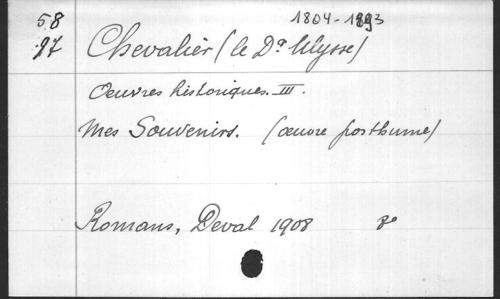 58 1804-1893
97 Chevalier (le Dr Ulysse)
Oeuvres historiques. III.
Mes Souvenirs. (œuvre posthume)
Romans, Deval 1908 8o